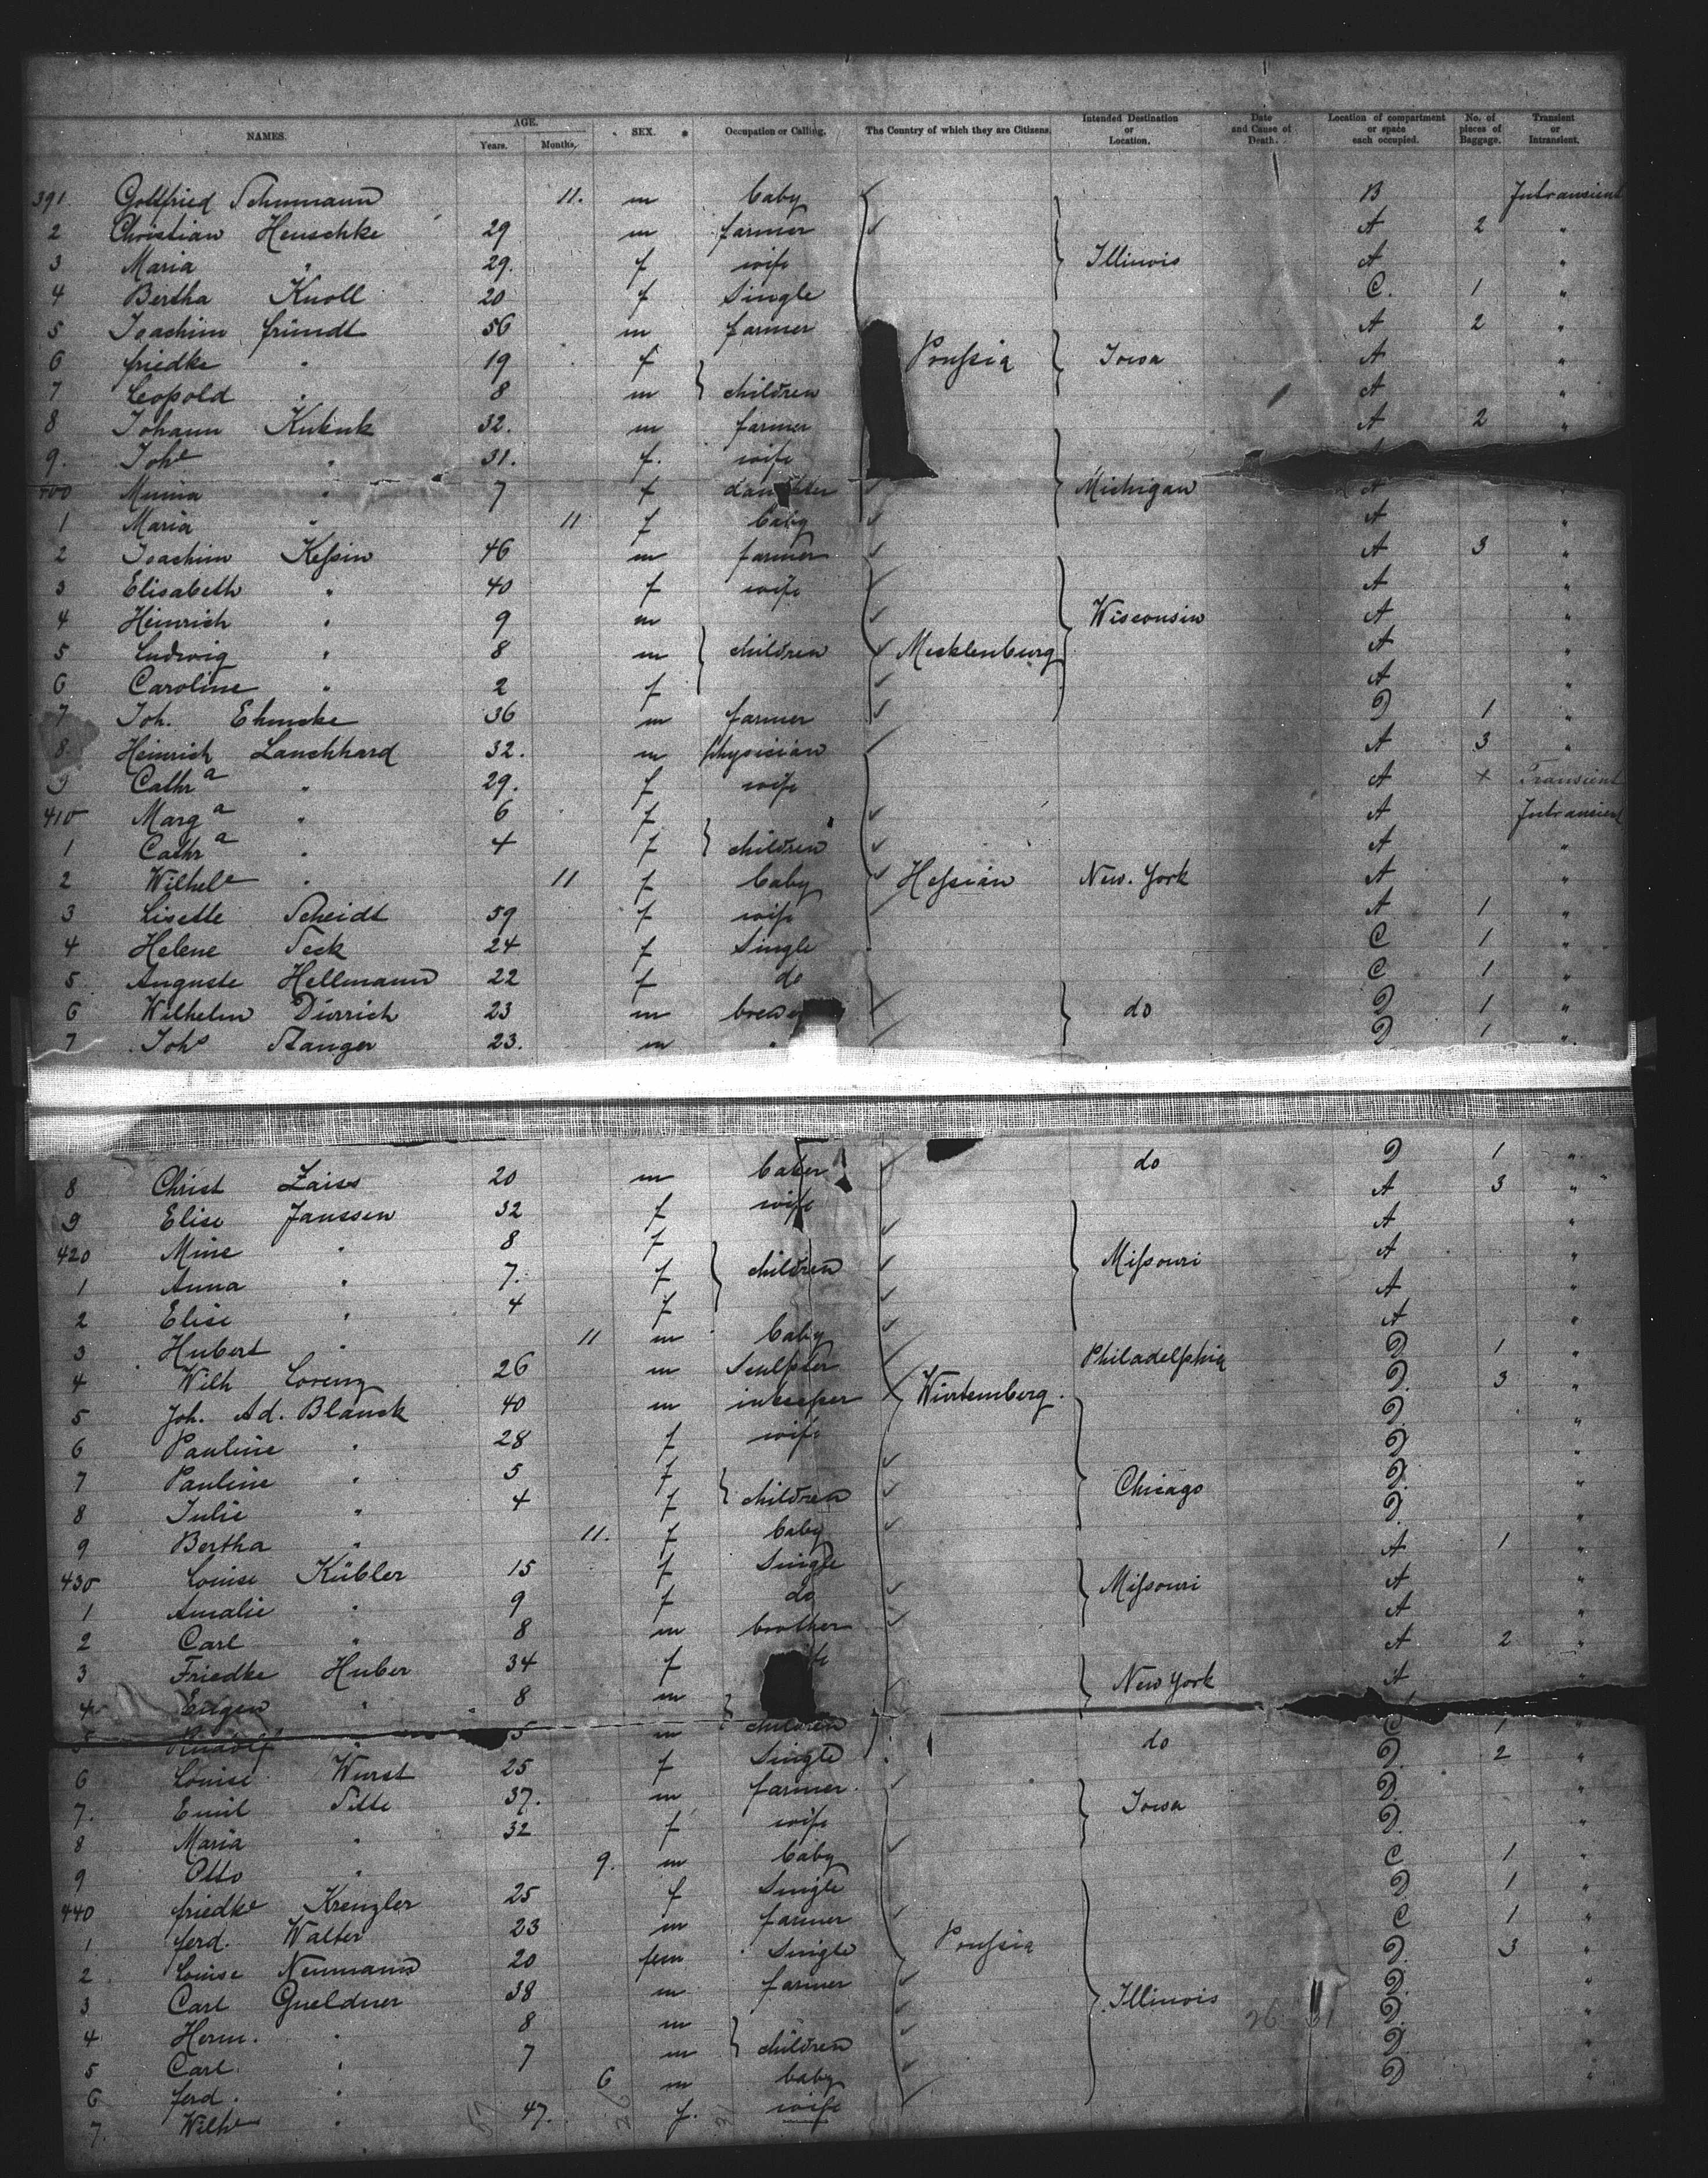 NAMES. AGE. Years. Months. SEX. Occupation or Calling. The Country of which they are Citizens. Intended Destination or Location. Date and Cause of Death. Location of compartment or space each occupied. No. of pieces of Baggage. Transient or Intransient.
391. Gottfried Schumann 11. m baby B Intransient
2 Christian Henschke 29 m farmer A 2 "
3 Maria " 29. f wife Illinois A "
4 Bertha Knoll 20 f Single C. 1 "
5 Joachim fründt 56 m farmer A 2 "
6 friedke " 19 f Prußia Iowa A "
7 Leopold " 8 m children A "
8 Johann Kukuk 32. m farmer A 2 "
9. Johe " 31. f. wife
400 Minna " 7 f daughter Michigan A "
1 Maria " 11 f baby A "
2 Joachim Keßin 46 m farmer A 3 "
3 Elisabeth " 40 f wife A "
4 Heinrich " 9 m Wisconsin A "
5 Ludwig " 8 m children Mecklenburg A "
6 Caroline " 2 f A "
7 Joh. Ehmcke 36 m farmer D 1 "
8. Heinrich Lauckhard 32. m physician A 3 "
9 Cathra " 29. f wife A + Transient
410 Marga " 6 f A Intransient
1 Cathra " 4 f children A "
2 Wilhele " 11 f baby Heßian New. York A "
3 Lisette Scheidt 59 f wife A 1 "
4 Helene Seck 24 f Single C 1 "
5. Auguste Hellmann 22 f do C 1 "
6 Wilhelm Dürrich 23 m brewer do D 1 "
7 Johs Stanger 23. m " D 1 "
8 Christ Zaiss 20 m baker do D 1 "
9 Elise Janssen 32 f wife A 3 "
420 Mine " 8 f A "
1 Anna " 7. f children Mißouri A "
2 Elise " 4 f A "
3 Hubert " 11 m baby A "
4 Wilh Lorenz 26 m Sculpter Philadelphia D 1 "
5 Joh. Ad. Blanck 40 m inkeeper Würtemberg. D. 3 "
6 Pauline " 28 f wife D. "
7 Pauline " 5 f D
8 Julie " 4 f children Chicago D. "
9 Bertha " 11. f baby D. "
430 Louise Kübler 15 f Single A 1 "
1 Amalie " 9 f do Mißouri A "
2 Carl " 8 m brother A "
3 Friedke Huber 34 f A 2 "
4 Eugen " 8 m New York A "
5 Rudolf " 5 m children
6 Louise Wurst 25 f Single do C 1 "
7. Emil Sette 37. m farmer. D. 2 "
8 Maria " 32 f wife Iowa D. "
9 Otto " 9. m baby D. "
440 friedke Krenzler 25 f Single C 1 "
1. ferd. Walter 23 m farmer D 1 "
2 Louise Neumann 20 fem Single Prußia C 1 "
3 Carl Gueldner 38 m farmer D. 3 "
4 Herm. " 8 m Illinois D. "
5 Carl. " 7 m children D. "
6 ferd. " 6 m baby D. "
7. Wilhe " 47. f. wife D "